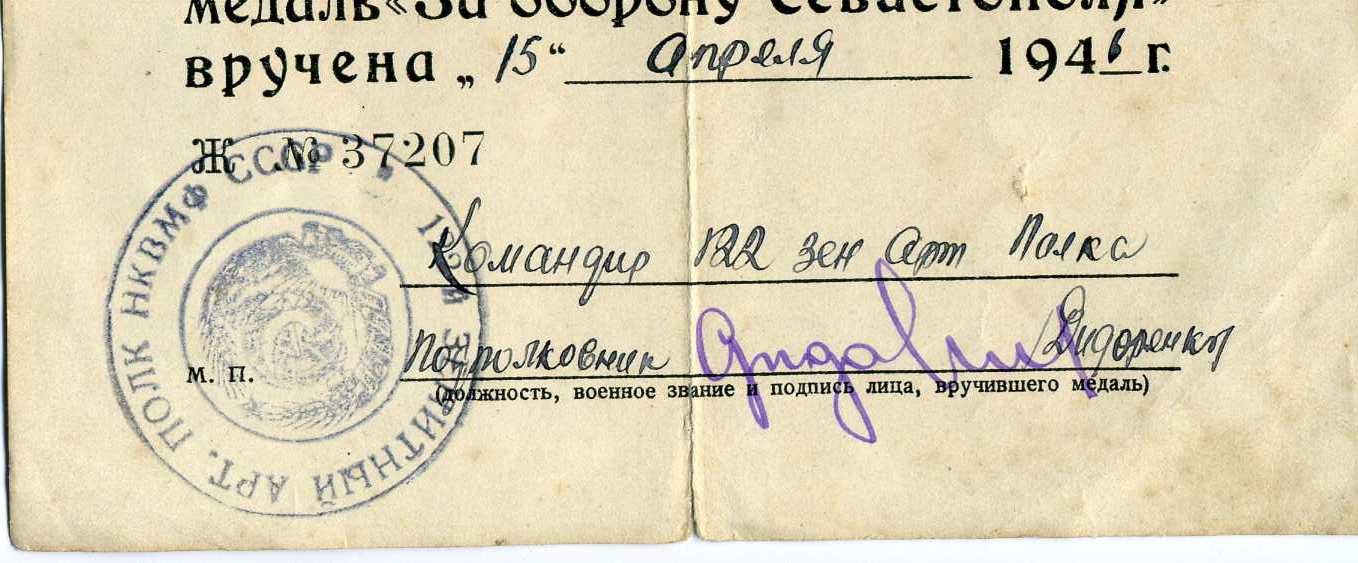 медаль «За оборону Севастополя»
вручена „15“ апреля 1946 г.
Ж № 37207
Командир 122 зен арт Полка
Подполковник
м. п.
(должность, военное звание и подпись лица, вручившего медаль)
122-й ЗЕНИТНЫЙ АРТ. ПОЛК НКВМФ СССР